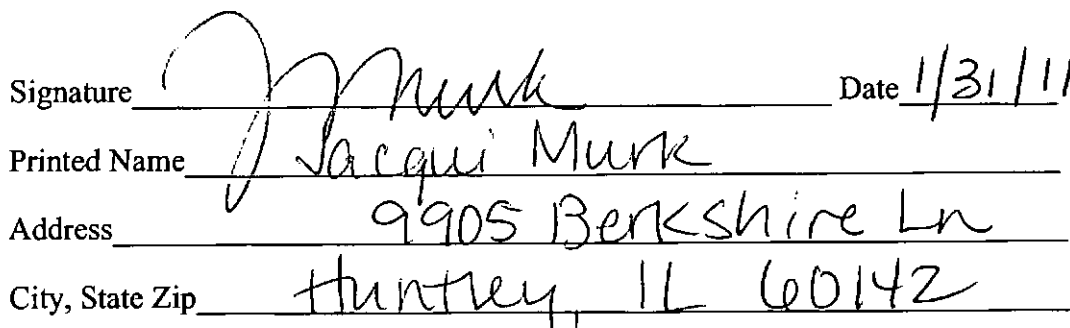 Signature J Murk Date 1/31/11
Printed Name Jacqui Murk
Address 9905 Berkshire Ln
City, State Zip Huntley, IL 60142